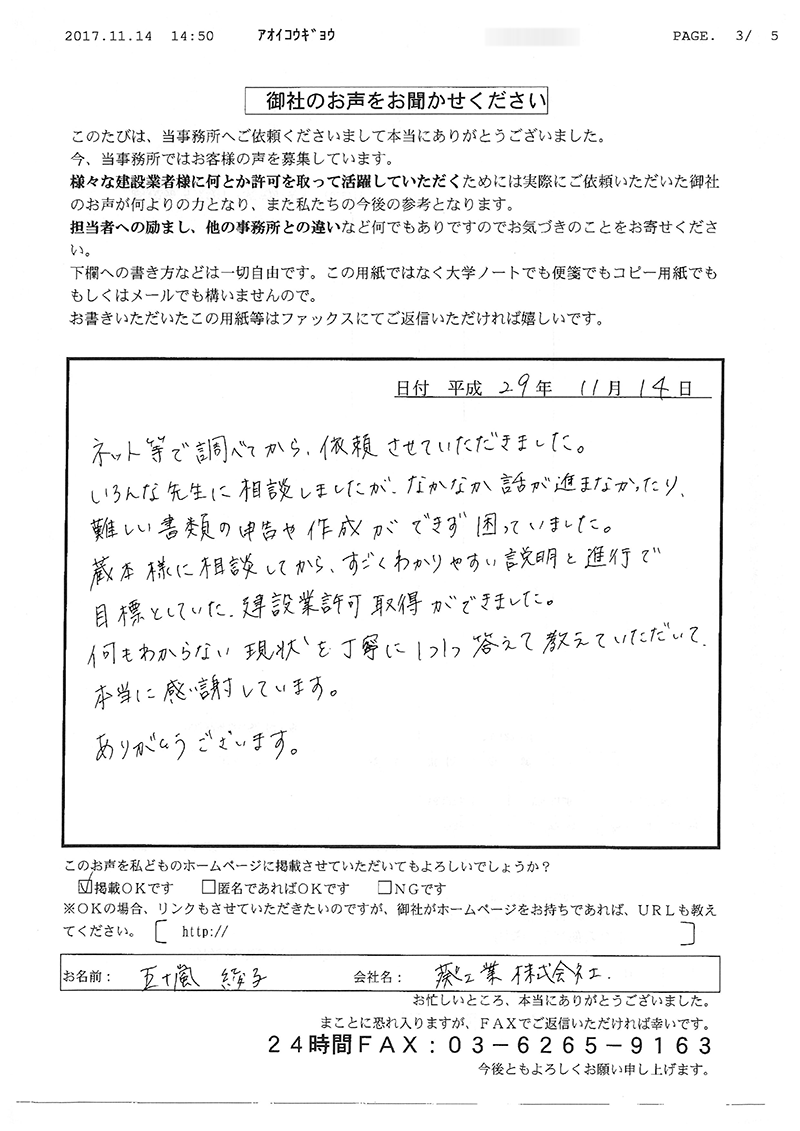 2017.11.14 14:50 ｱｵｲｺｳｷﾞｮｳ PAGE. 3/ 5
御社のお声をお聞かせください
このたびは、当事務所へご依頼くださいまして本当にありがとうございました。
今、当事務所ではお客様の声を募集しています。
様々な建設業者様に何とか許可を取って活躍していただくためには実際にご依頼いただいた御社
のお声が何よりの力となり、また私たちの今後の参考となります。
担当者への励まし、他の事務所との違いなど何でもありですのでお気づきのことをお寄せくださ
い。
下欄への書き方などは一切自由です。この用紙ではなく大学ノートでも便箋でもコピー用紙でも
もしくはメールでも構いませんので。
お書きいただいたこの用紙等はファックスにてご返信いただければ嬉しいです。
日付 平成 29年 11月 14日
ネット等で調べてから、依頼させていただきました。
いろんな先生に相談しましたが、なかなか話が進まなかったり、
難しい書類の申告や作成ができず困っていました。
蔵本様に相談してから、すごくわかりやすい説明と進行で
目標としていた、建設業許可取得ができました。
何もわからない現状を丁寧に1つ1つ答えて教えていただいて、
本当に感謝しています。
ありがとうございます。
このお声を私どものホームページに掲載させていただいてもよろしいでしょうか？
☑掲載ＯＫです □匿名であればＯＫです □ＮＧです
※ＯＫの場合、リンクもさせていただきたいのですが、御社がホームページをお持ちであれば、ＵＲＬも教え
てください。 [ http:// ]
お名前： 五十嵐 綾子 会社名： 葵工業 株式会社
お忙しいところ、本当にありがとうございました。
まことに恐れ入りますが、ＦＡＸでご返信いただければ幸いです。
２４時間ＦＡＸ：０３－６２６５－９１６３
今後ともよろしくお願い申し上げます。